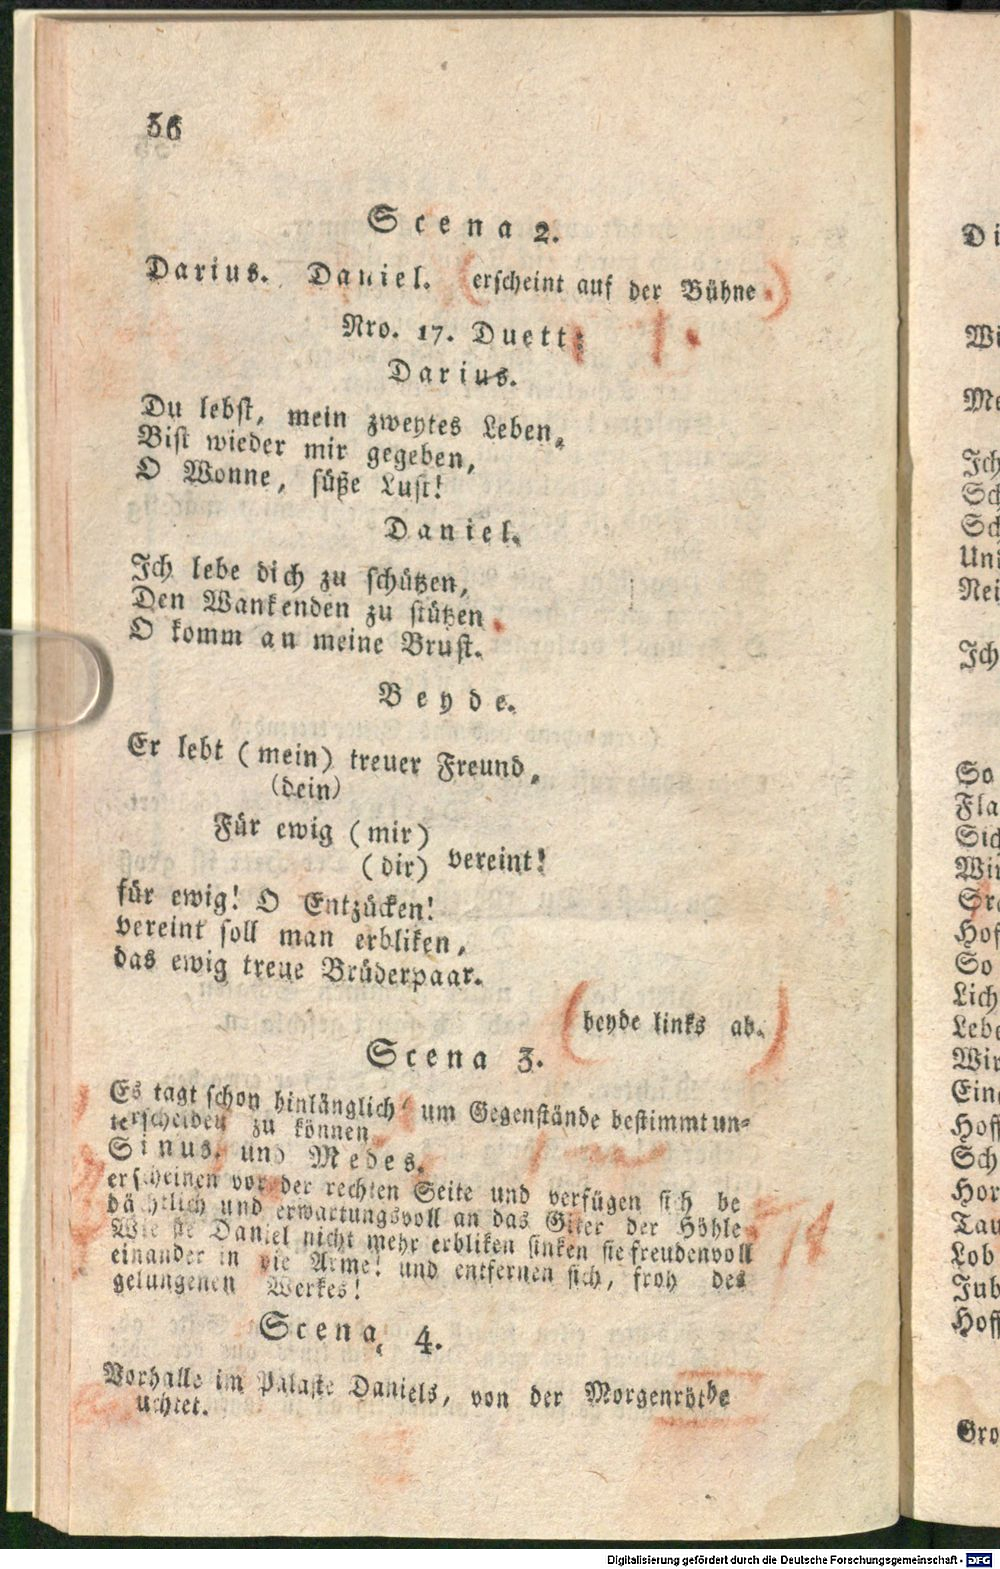 56
Scena 2.
Darius. Daniel. (erscheint auf der Bühne.)
Nro. 17. Duett:
Darius.
Du lebst, mein zweytes Leben,
Bist wieder mir gegeben,
O Wonne, süße Lust!
Daniel.
Ich lebe dich zu schützen,
Den Wankenden zu stützen.
O komm an meine Brust.
Beyde.
Er lebt (mein) treuer Freund,
(dein)
Für ewig (mir)
(dir) vereint!
für ewig! O Entzücken!
vereint soll man erbliken,
das ewig treue Brüderpaar.
(beyde links ab.)
Scena 3.
Es tagt schon hinlänglich um Gegenstände bestimmt un-
terscheiden zu können.
Sinus. und Medes.
erscheinen vor der rechten Seite und verfügen sich be
dächtlich und erwartungsvoll an das Gitter der Höhle
Wie sie Daniel nicht mehr erbliken sinken sie freudenvoll
einander in die Arme! und entfernen sich, froh des
gelungenen Werkes!
Scena 4.
Vorhalle im Palaste Daniels, von der Morgenröthe
uchtet.
Di
Wi
Me
Ich
Sch
Sch
Und
Nei
Ich
So
Fla
Sich
Wir
Hof
So
Lich
Lebe
Wir
Eing
Hoff
Sch
Hor
Tau
Lob
Jub
Hoff
Gro
Digitalisierung gefördert durch die Deutsche Forschungsgemeinschaft - DFG